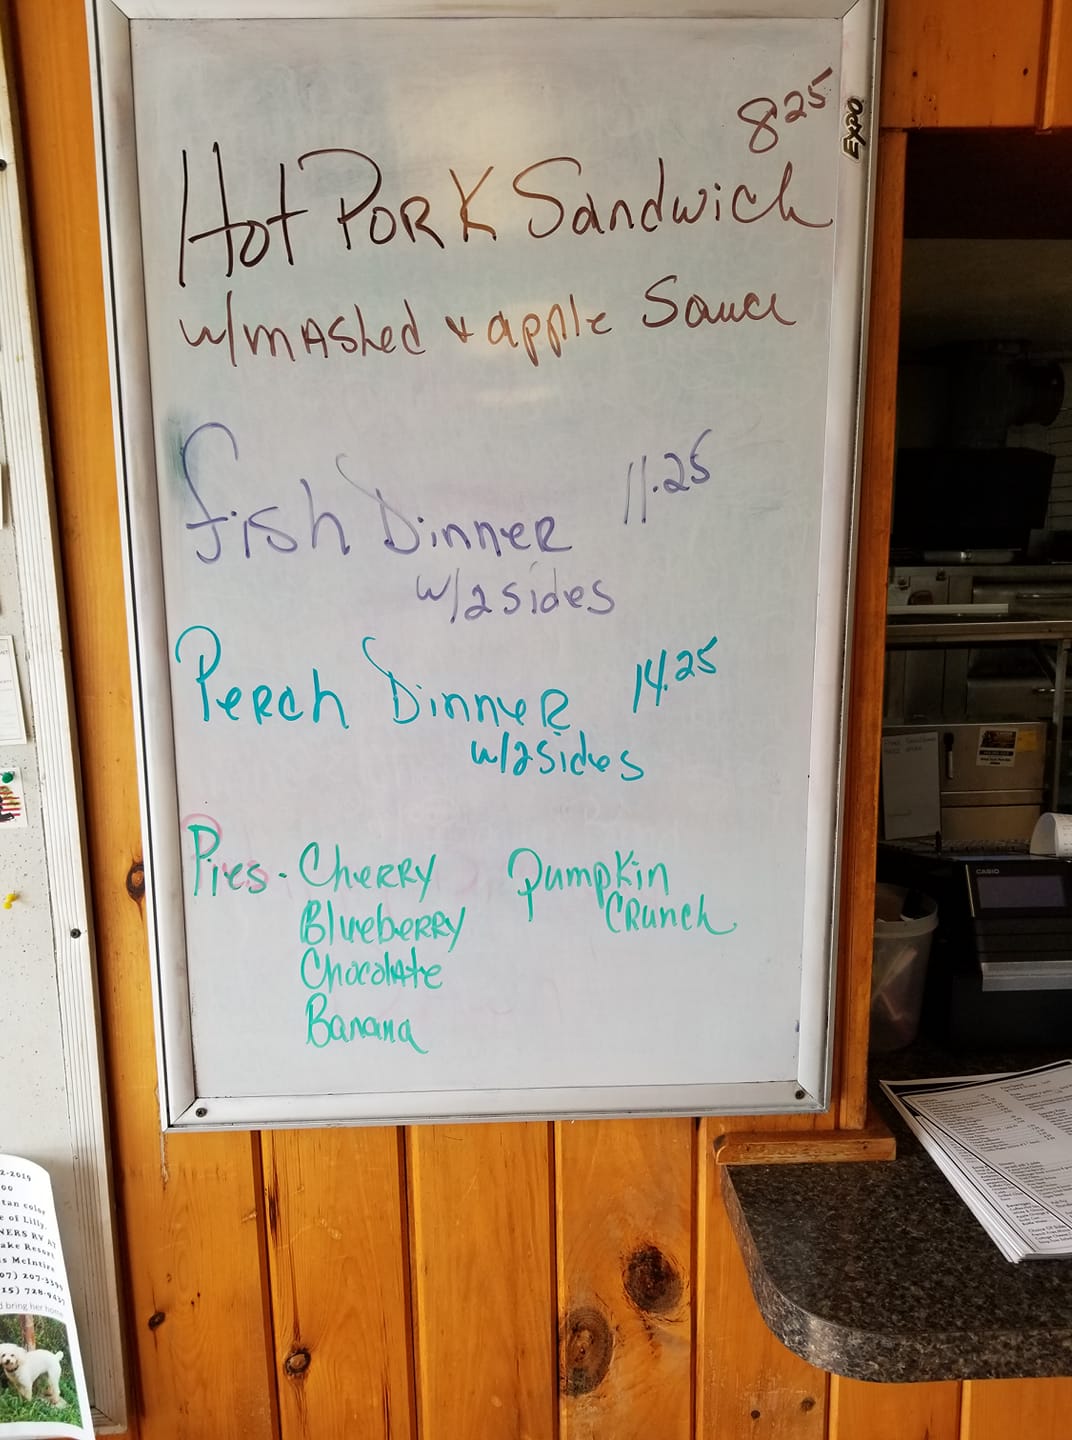 8 25
EXPO
Hot PORK Sandwich
w/mAshed & apple Sauce
fish Dinner 11.25
w/2 sides
Perch Dinner 14.25
w/2 sides
Pies - Cherry Pumpkin
Blueberry Crunch
Chocolate
Banana
CASIO
2-2019
00
tan color
e of Lilly.
NERS RV
ake Resort
s McIntire
07) 207-3399
15) 728-9437
d bring her home